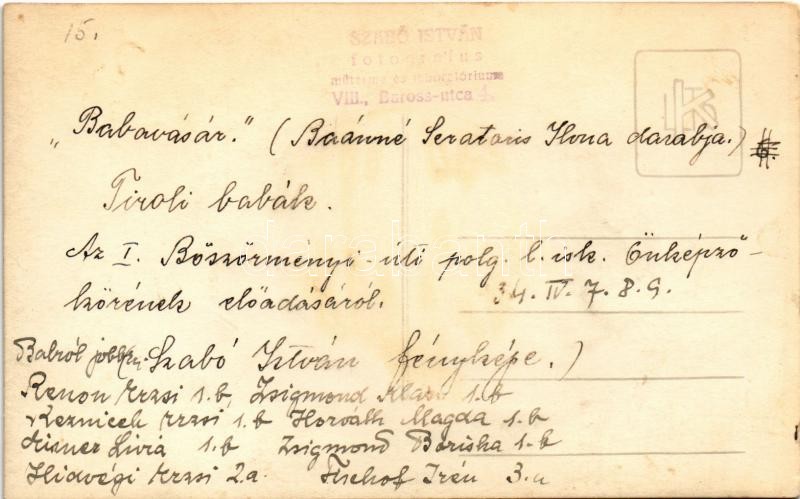 15.
SZABÓ ISTVÁN
fotografus
műterme és laboratóriuma
VIII., Baross-utca 4.
"Babavásár." (Baánné Seratoris Ilona darabja.)
Tiroli babák.
Az I. Böszörményi-úti polg. l. isk. Önképző-
körének előadásáról.
34. IV. 7. 8. 9.
(Szabó István fényképe.)
Balról jobbra
Renon Erzsi 1.b, Zsigmond Klári 1.b
Keznicek Erzsi 1.b Horváth Magda 1.b
Lívia 1.b Zsigmond Boriska 1.b
Hidvégi Erzsi 2.a Irén 3.a